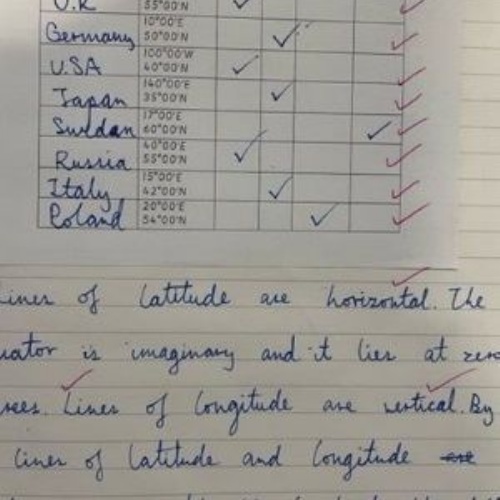 U.K 55°00'N
Germany 10°00'E 50°00'N
U.S.A 100°00'W 40°00'N
Japan 140°00'E 35°00'N
Swedan 17°00'E 60°00'N
Russia 40°00'E 55°00'N
Italy 15°00'E 42°00'N
Poland 20°00'E 54°00'N
Lines of latitude are horizontal. The
uator is imaginary and it lies at zero
rees. Lines of longitude are vertical. By
lines of latitude and longitude are